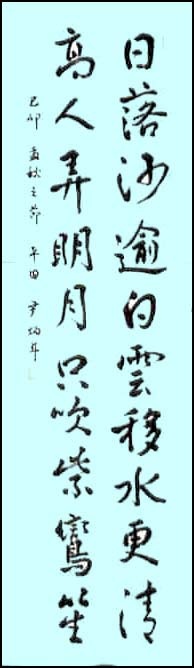 日落沙逾白雲移水更清
高人弄明月只吹紫鸞笙
己卯 孟秋之節 平田 尹炳斗